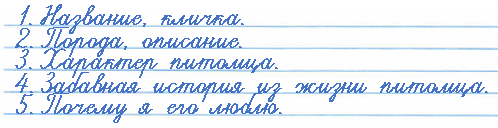 1. Название, кличка.
2. Порода, описание.
3. Характер питомца.
4. Забавная история из жизни питомца.
5. Почему я его люблю.